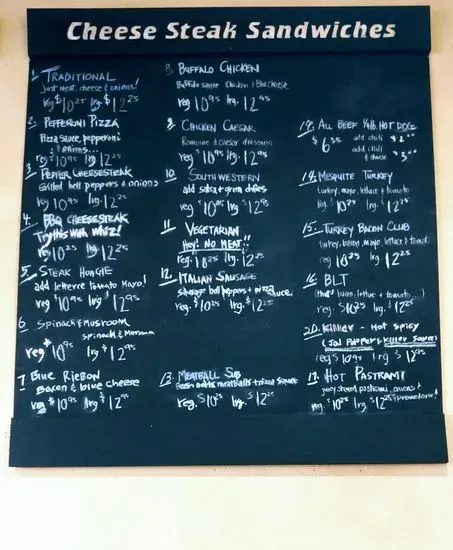 Cheese Steak Sandwiches
1. TRADITIONAL
Just meat, cheese & onions!
reg $10²⁵ lrg. $12²⁵
2. PEPPERONI PIZZA
Pizza sauce, pepperoni
& onions...
reg $10⁹⁵ lrg $12²⁵
3. PEPPER CHEESESTEAK
Grilled bell peppers & onions
reg $10⁹⁵ lrg $12²⁵
4. BBQ CHEESESTEAK
Try this with whiz!
reg $10²⁵ lrg $12²⁵
5. STEAK HOAGIE
add lettuce tomato Mayo!
reg $10⁹⁵ lrg $12⁹⁵
6. SPINACH & MUSROOM
spinach & Mushroom
reg $10⁹⁵ lrg $12⁹⁵
7. BLUE RIBBON
Bacon & blue cheese
reg $10⁹⁵ lrg $12⁹⁵
8. BUFFALO CHICKEN
Buffalo sauce Chicken & Blue Cheese
reg $10⁹⁵ lrg $12⁹⁵
9. CHICKEN CAESAR
Romaine & caesar dressing
reg $10⁹⁵ lrg $12⁹⁵
10. SOUTHWESTERN
add salsa & green chilies
reg. $10²⁵ lrg. $12²⁵
11. VEGETARIAN
Hey! NO MEAT!!
reg. $10²⁵ lrg. $12²⁵
12. ITALIAN SAUSAGE
sausage bell peppers & pizza sauce.
reg. $10²⁵ lrg $12²⁵
13. MEATBALL SUB
meatballs & pizza sauce
reg. $10²⁵ lrg $12²⁵
ALL BEEF 1/4lb. HOT DOGS
add chili
add chili
& cheese
14. MESQUITE TURKEY
turkey, mayo, lettuce & tomato
reg. $10²⁵ lrg. $12²⁵
15. TURKEY BACON CLUB
turkey, bacon, mayo, lettuce & tomato
reg $10²⁵ lrg. $12²⁵
16. BLT
(that's bacon, lettuce & tomato...)
reg. $10²⁵ lrg. $12²⁵
20. KILLER - Hot Spicy
Killer Sauce)
reg $10⁹⁵ lrg $12⁹⁵
17. HOT PASTRAMI
pastrami, onions &
reg. $10²⁵ lrg. $12²⁵